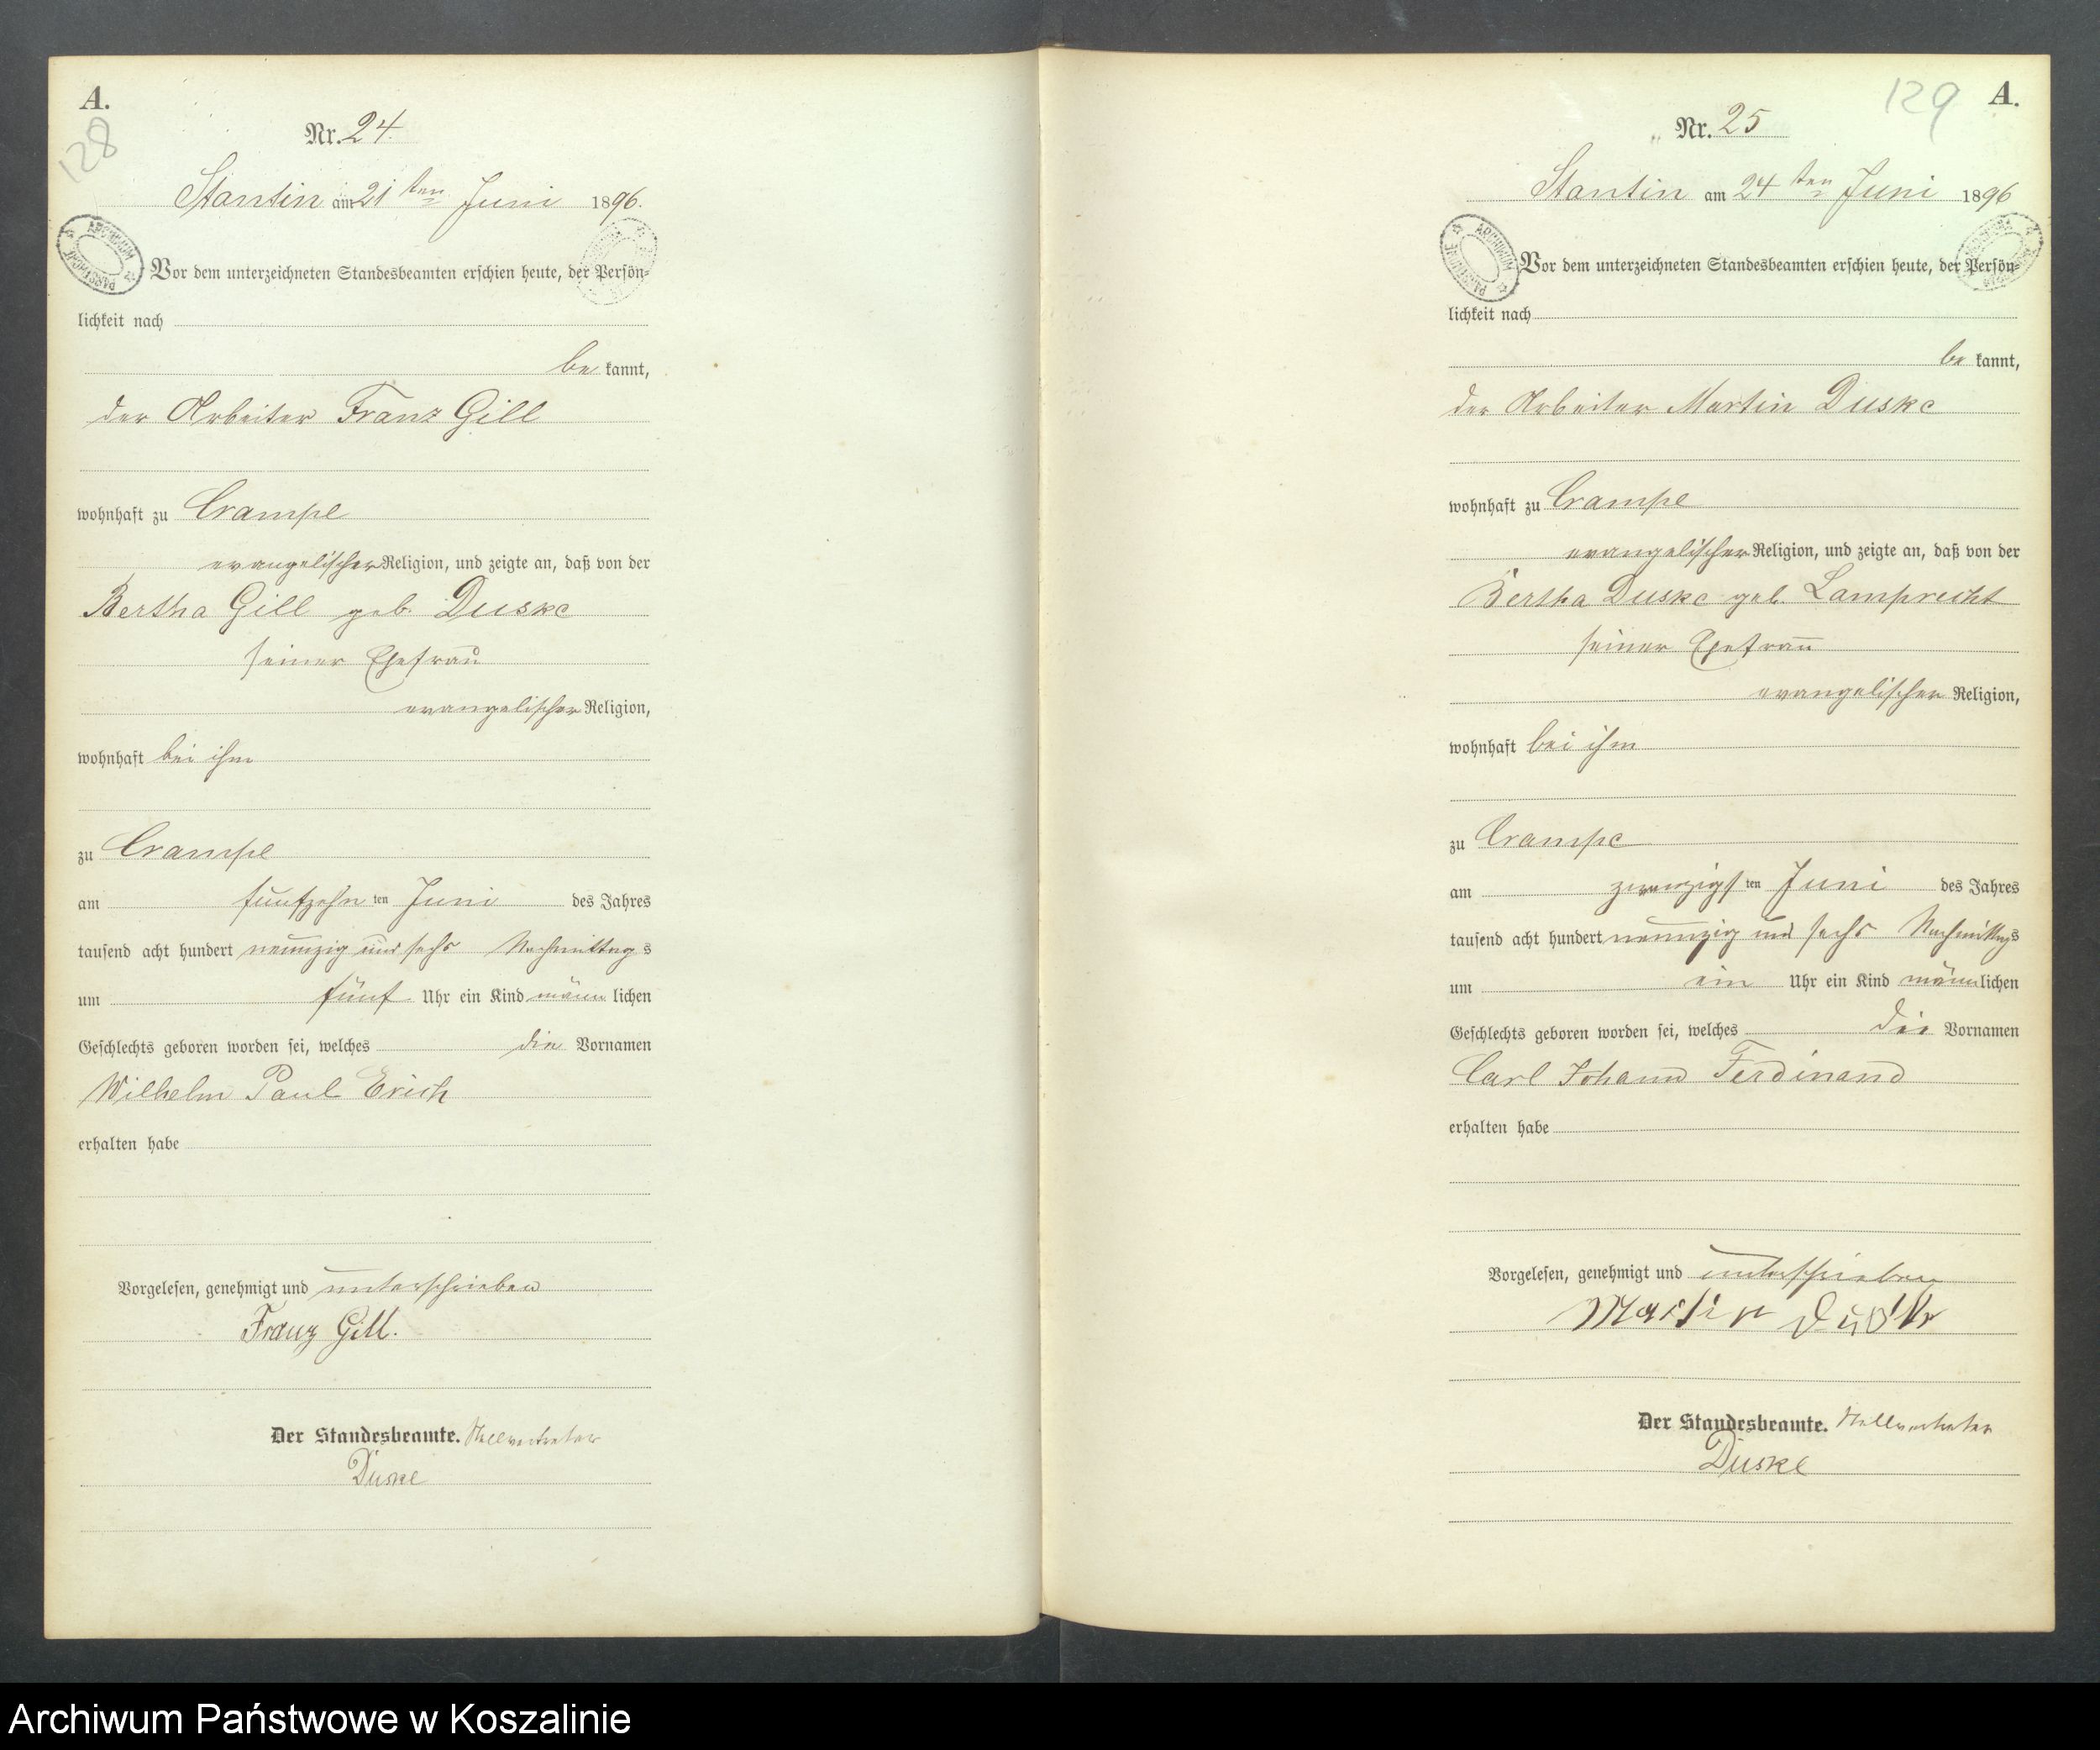 A.
128
Nr. 24.
Stantin am 21ten Juni 1896.
ARCHIWUM PAŃSTWOWE
Vor dem unterzeichneten Standesbeamten erschien heute, der Persön-
lichkeit nach
be kannt,
der Arbeiter Franz Gill
wohnhaft zu Crampe
evangelischer Religion, und zeigte an, daß von der
Bertha Gill geb. Duske
seiner Ehefrau
evangelischer Religion,
wohnhaft bei ihm
zu Crampe
am fünfzehn ten Juni des Jahres
tausend acht hundert neunzig und sechs Nachmittag s
um fünf Uhr ein Kind männ lichen
Geschlechts geboren worden sei, welches die Vornamen
Wilhelm Paul Erich
erhalten habe
Vorgelesen, genehmigt und unterschrieben
Franz Gill.
Der Standesbeamte. Stellvertreter
Duske
129 A.
Nr. 25
Stantin am 24ten Juni 1896
ARCHIWUM PAŃSTWOWE
Vor dem unterzeichneten Standesbeamten erschien heute, der Persön-
lichkeit nach
be kannt,
der Arbeiter Martin Duske
wohnhaft zu Crampe
evangelischer Religion, und zeigte an, daß von der
Bertha Duske geb. Lamprecht
seiner Ehefrau
evangelischer Religion,
wohnhaft bei ihm
zu Crampe
am zwanzigs ten Juni des Jahres
tausend acht hundert neunzig und sechs Nachmittags
um ein Uhr ein Kind männlichen
Geschlechts geboren worden sei, welches die Vornamen
Carl Johann Ferdinand
erhalten habe
Vorgelesen, genehmigt und unterschrieben
Martin Duske
Der Standesbeamte. Stellvertreter
Duske
Archiwum Państwowe w Koszalinie